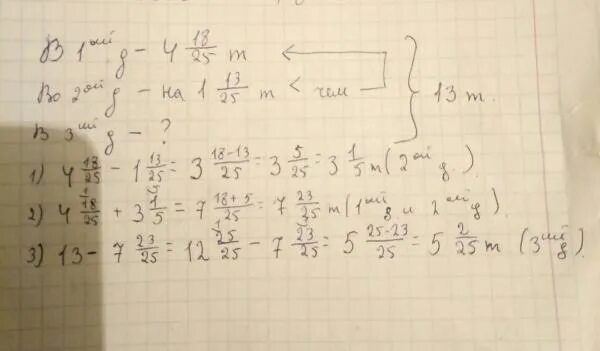 В 1ый д – 4 18/25 т
Во 2ой д – на 1 13/25 т < чем
В 3ий д – ?
13 т.
1) 4 18/25 – 1 13/25 = 3 18–13/25 = 3 5/25 = 3 1/5 т (2ой д.)
2) 4 18/25 + 3 1/5 = 7 18+5/25 = 7 23/25 т (1ый д и 2ой д).
3) 13 – 7 23/25 = 12 25/25 – 7 23/25 = 5 25–23/25 = 5 2/25 т (3ий д).